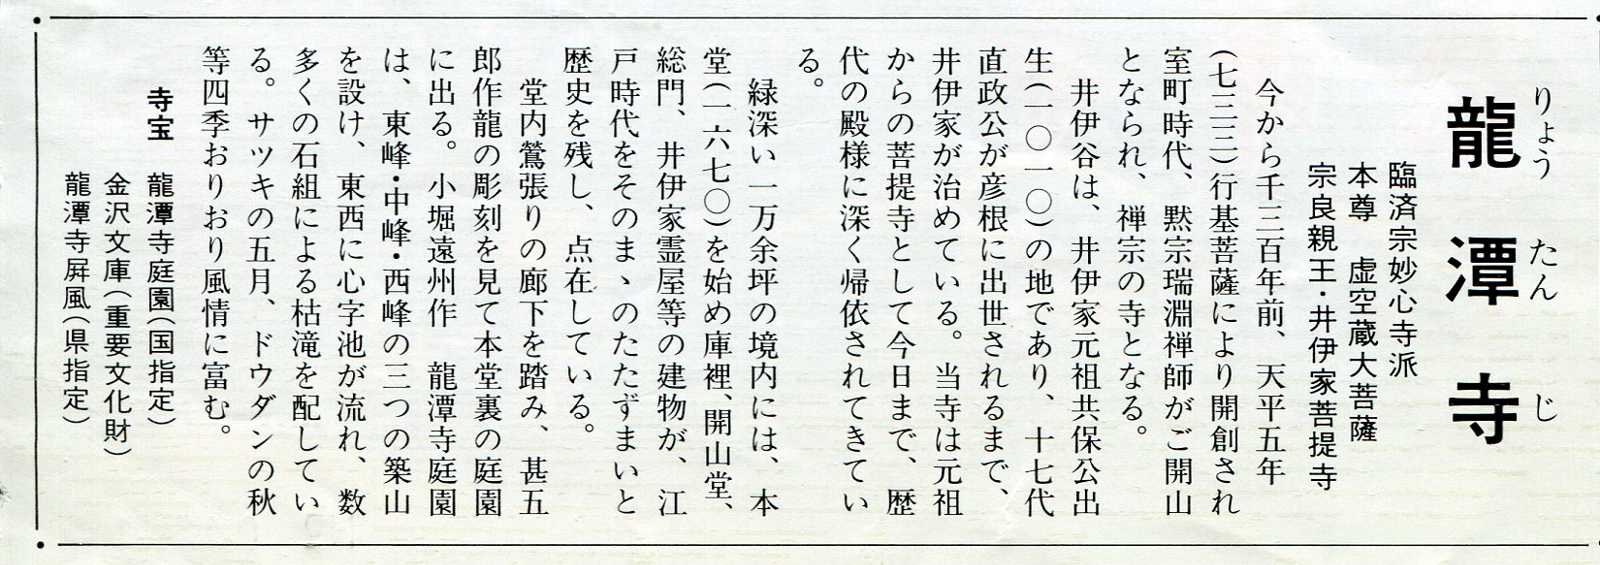 りょう たん じ
龍潭寺
臨済宗妙心寺派
本尊　虚空蔵大菩薩
宗良親王・井伊家菩提寺
今から千三百年前、天平五年
(七三三)行基菩薩により開創され
室町時代、黙宗瑞淵禅師がご開山
となられ、禅宗の寺となる。
井伊谷は、井伊家元祖共保公出
生(一〇一〇)の地であり、十七代
直政公が彦根に出世されるまで、
井伊家が治めている。当寺は元祖
からの菩提寺として今日まで、歴
代の殿様に深く帰依されてきてい
る。
緑深い一万余坪の境内には、本
堂(一六七〇)を始め庫裡、開山堂、
総門、井伊家霊屋等の建物が、江
戸時代をそのまゝのたたずまいと
歴史を残し、点在している。
堂内鶯張りの廊下を踏み、甚五
郎作龍の彫刻を見て本堂裏の庭園
に出る。小堀遠州作　龍潭寺庭園
は、東峰・中峰・西峰の三つの築山
を設け、東西に心字池が流れ、数
多くの石組による枯滝を配してい
る。サツキの五月、ドウダンの秋
等四季おりおり風情に富む。
寺宝　龍潭寺庭園(国指定)
金沢文庫(重要文化財)
龍潭寺屏風(県指定)